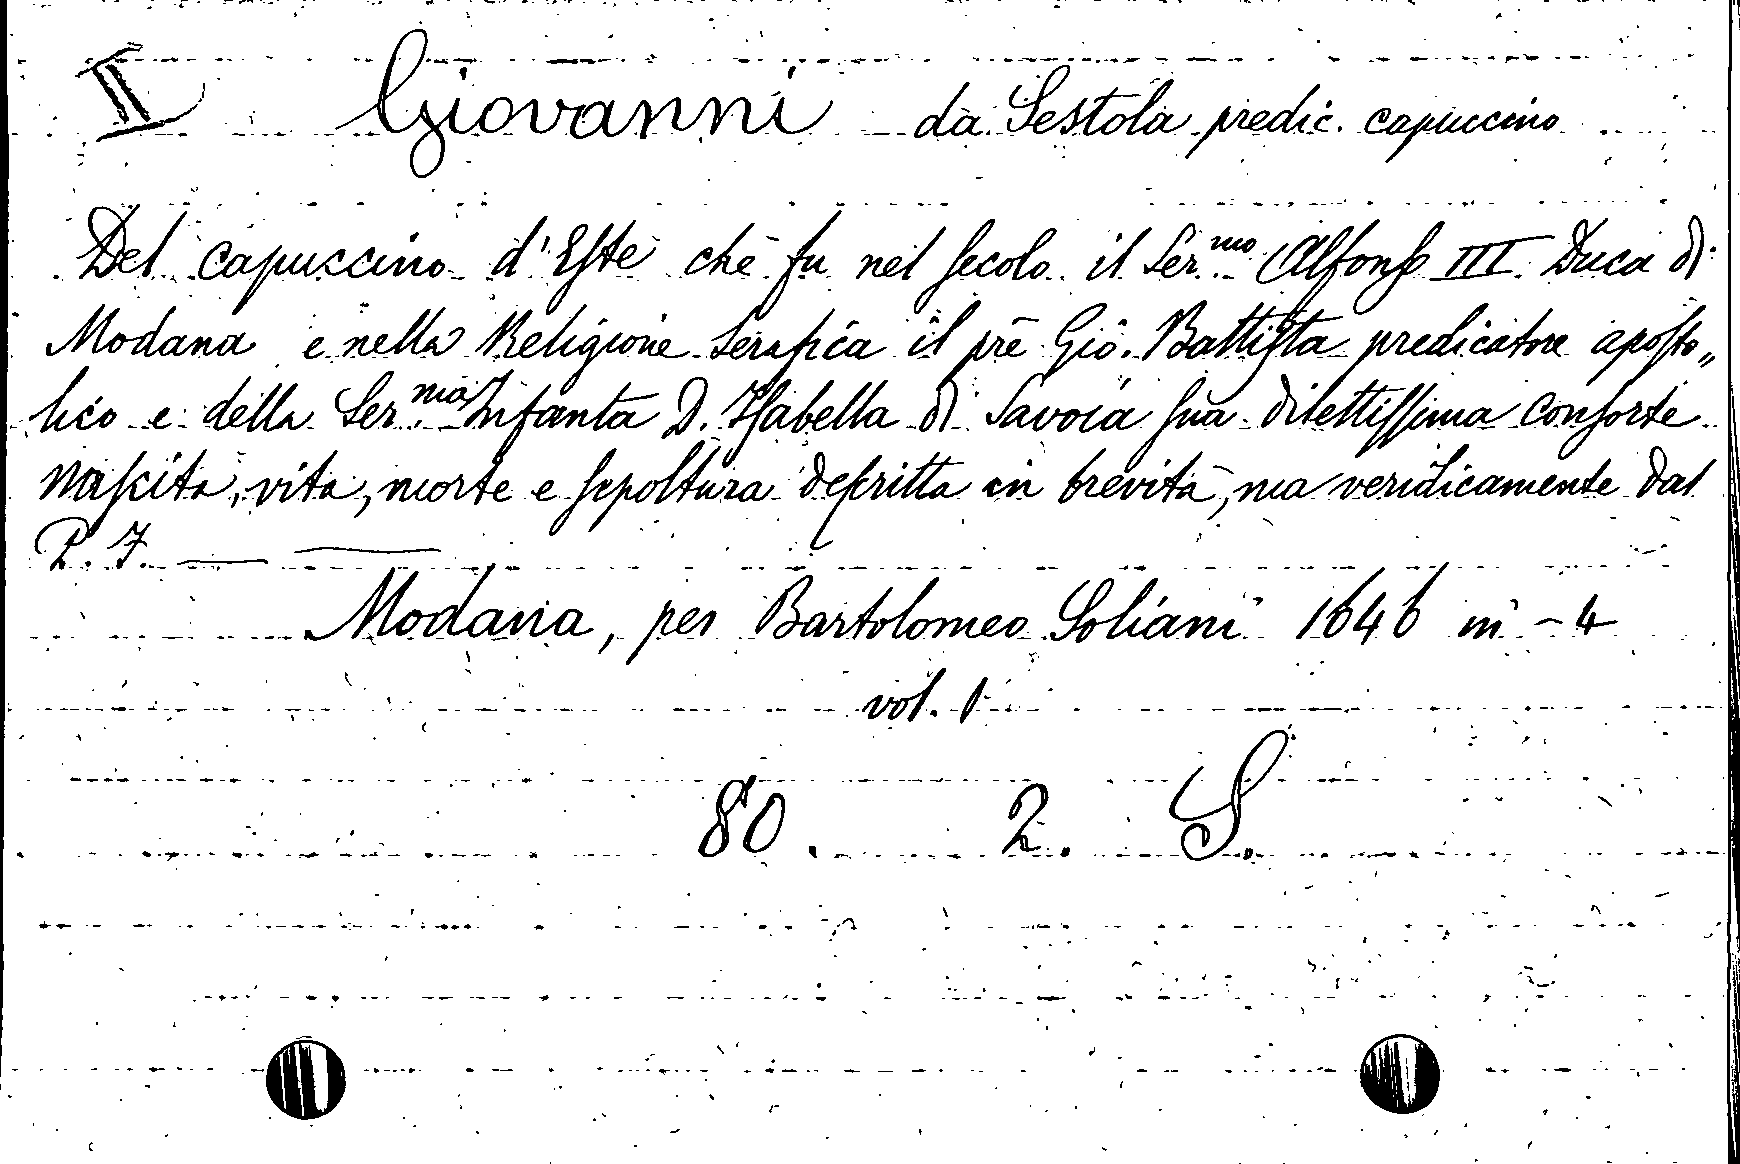 II Giovanni da Sestola predic. capuccino
Del capuccino d'Este che fu nel secolo il Ser.mo Alfonso III. Duca di
Modana e nella Religione serafica il prē Giō. Battista predicatore aposto„
lico e della Ser.ma Infanta D. Isabella di Savoia sua dilettissima consorte
nascita, vita, morte e sepoltura descritta in brevità, ma veridicamente dal
P. F.
Modana, per Bartolomeo Soliani 1646 in - 4
vol. 1
80. 2. S.